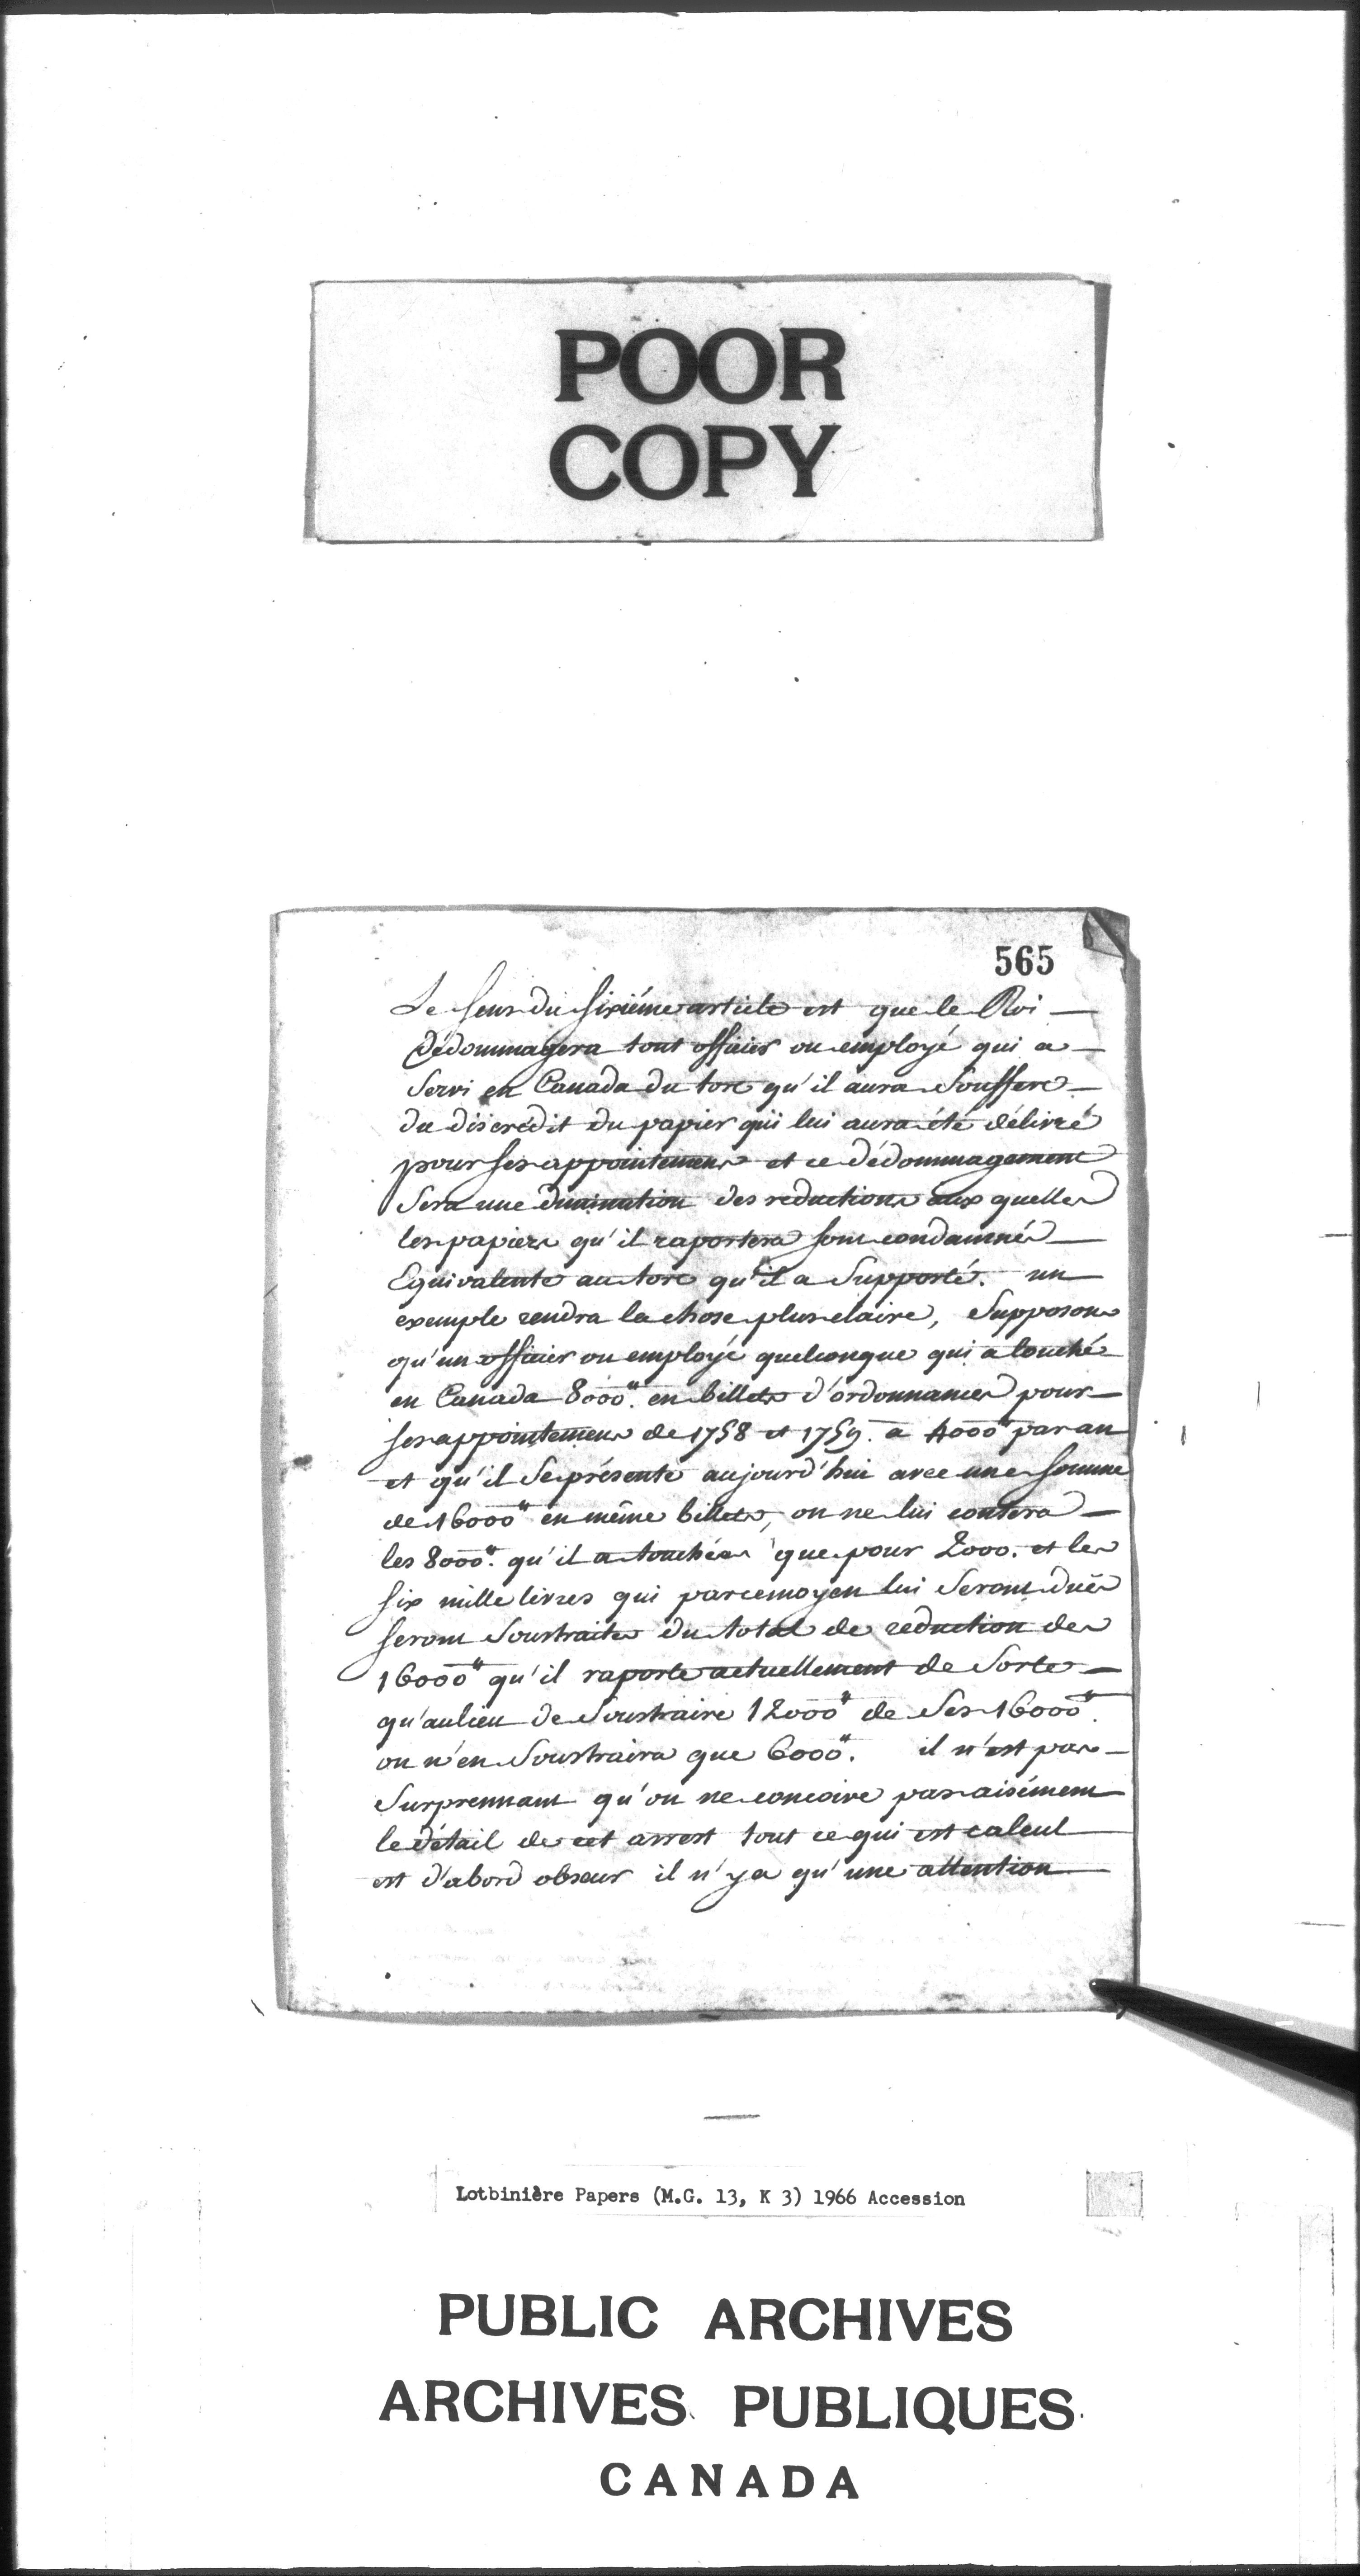 POOR
COPY
565
Le sens du sixiéme article est que le Roi
dédommagera tout officier ou employé qui a
servi en Canada du tort qu'il aura souffert
du discrédit du papier qui lui aura été délivré
pour ses appointemens et ce dédommagement
sera une diminution des reductions aux quelles
les papiers qu'il raportera sont condamnés
Equivalente au tort qu'il a supporté. un
exemple rendra la chose plus claire, supposons
qu'un officier ou employé quelconque qui a touché
en Canada 8000ᵗᵗ en billets d'ordonnances pour
ses appointemens de 1758 et 1759. a 4000ᵗᵗ par an
et qu'il se présente aujourd'hui avec une somme
de 16000ᵗᵗ en même billets, on ne lui contera
les 8000ᵗᵗ qu'il a touchées que pour 2000. et les
six mille livres qui par ce moyen lui seront duës
seront soustraites du total de reduction des
16000ᵗᵗ qu'il raporte actuellement de sorte
qu'au lieu de soustraire 12000ᵗᵗ de ses 16000ᵗᵗ.
on n'en soustraira que 6000ᵗᵗ. il n'est pas
surprennant qu'on ne concoive pas aisément
le détail de cet arrest tout ce qui est calcul
est d'abord obscur il n'y a qu'une attention
Lotbinière Papers (M.G. 13, K 3) 1966 Accession
PUBLIC ARCHIVES
ARCHIVES PUBLIQUES
CANADA